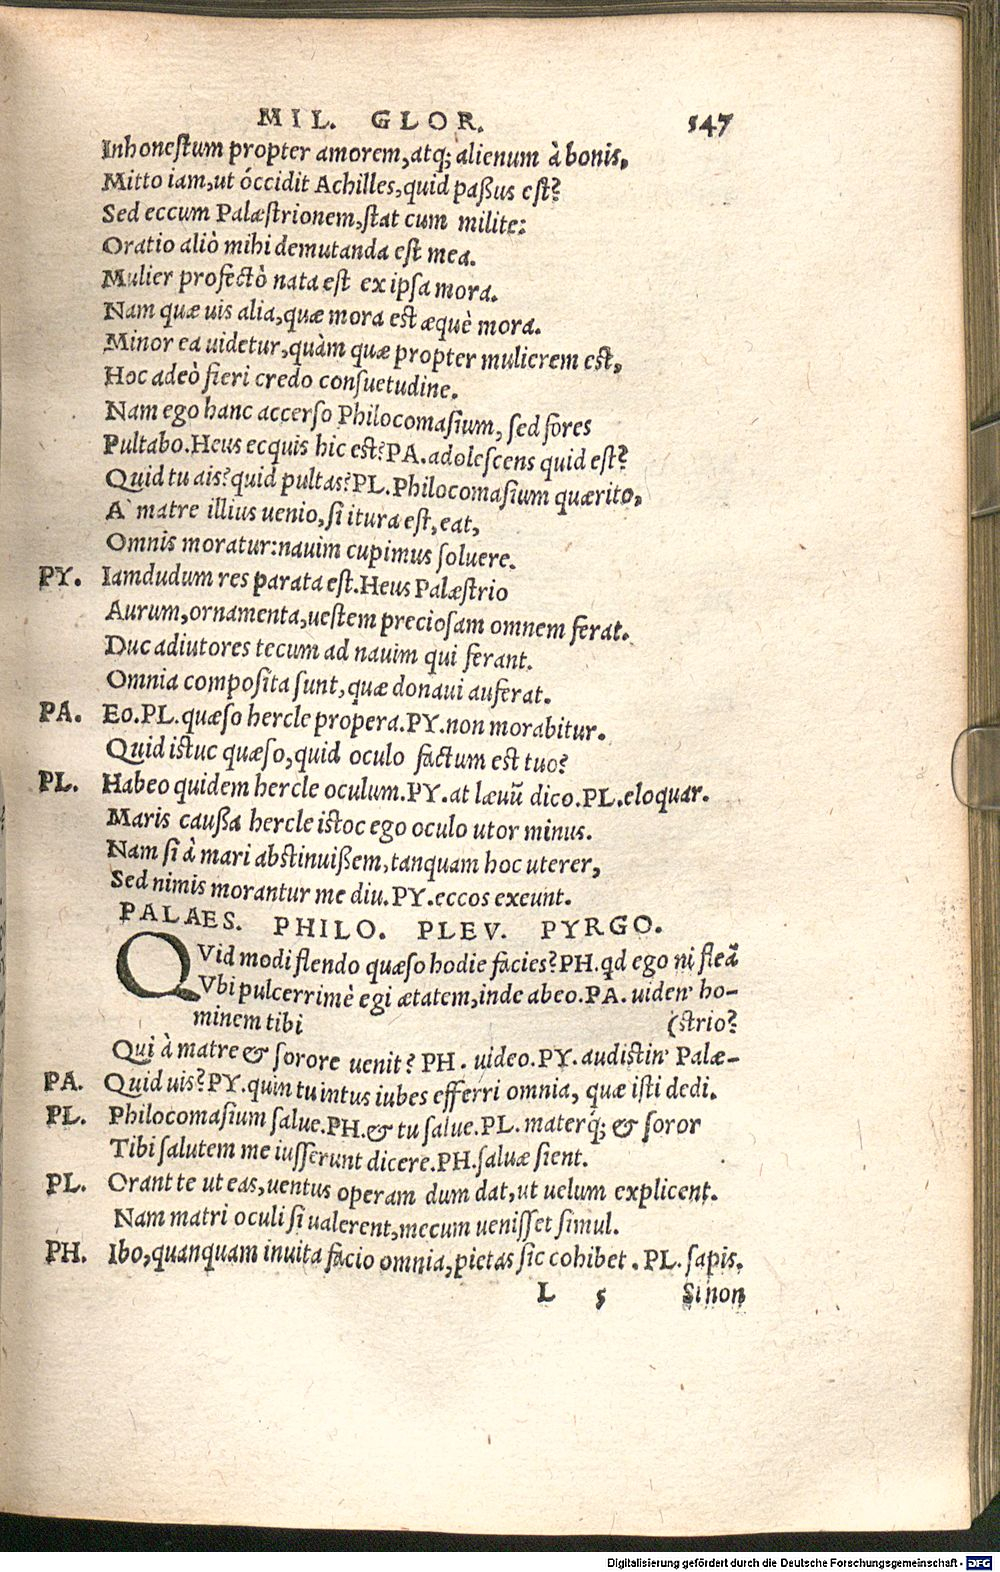 MIL. GLOR. 547
Inhonestum propter amorem, atq; alienum à bonis.
Mitto iam, ut óccidit Achilles, quid paßus est?
Sed eccum Palæstrionem, stat cum milite:
Oratio aliò mihi demutanda est mea.
Mulier profectò nata est ex ipsa mora.
Nam quæ uis alia, quæ mora est æquè mora.
Minor ea uidetur, quàm quæ propter mulierem est,
Hoc adeò fieri credo consuetudine.
Nam ego hanc accerso Philocomasium, sed fores
Pultabo. Heus ecquis hic est? PA. adolescens quid est?
Quid tu ais? quid pultas? PL. Philocomasium quærito,
A` matre illius uenio, si itura est, eat,
Omnis moratur: nauim cupimus soluere.
PY. Iamdudum res parata est. Heus Palæstrio
Aurum, ornamenta, uestem preciosam omnem ferat.
Duc adiutores tecum ad nauim qui ferant.
Omnia composita sunt, quæ donaui auferat.
PA. Eo. PL. quæso hercle propera. PY. non morabitur.
Quid istuc quæso, quid oculo factum est tuo?
PL. Habeo quidem hercle oculum. PY. at læuũ dico. PL. eloquar.
Maris caußa hercle istoc ego oculo utor minus.
Nam si à mari abstinuißem, tanquam hoc uterer,
Sed nimis morantur me diu. PY. eccos exeunt.
PALAES. PHILO. PLEV. PYRGO.
QVid modi flendo quæso hodie facies? PH. qd ego ni fleã
Vbi pulcerrimè egi ætatem, inde abeo. PA. uiden' ho-
minem tibi (strio?
Qui à matre & sorore uenit? PH. uideo. PY. audistin' Palæ-
PA. Quid uis? PY. quin tu intus iubes efferri omnia, quæ isti dedi.
PL. Philocomasium salue. PH. & tu salue. PL. materq; & soror
Tibi salutem me iusserunt dicere. PH. saluæ sient.
PL. Orant te ut eas, uentus operam dum dat, ut uelum explicent.
Nam matri oculi si ualerent, mecum uenisset simul.
PH. Ibo, quanquam inuita facio omnia, pietas sic cohibet. PL. sapis.
L 5 Si non
Digitalisierung gefördert durch die Deutsche Forschungsgemeinschaft - DFG